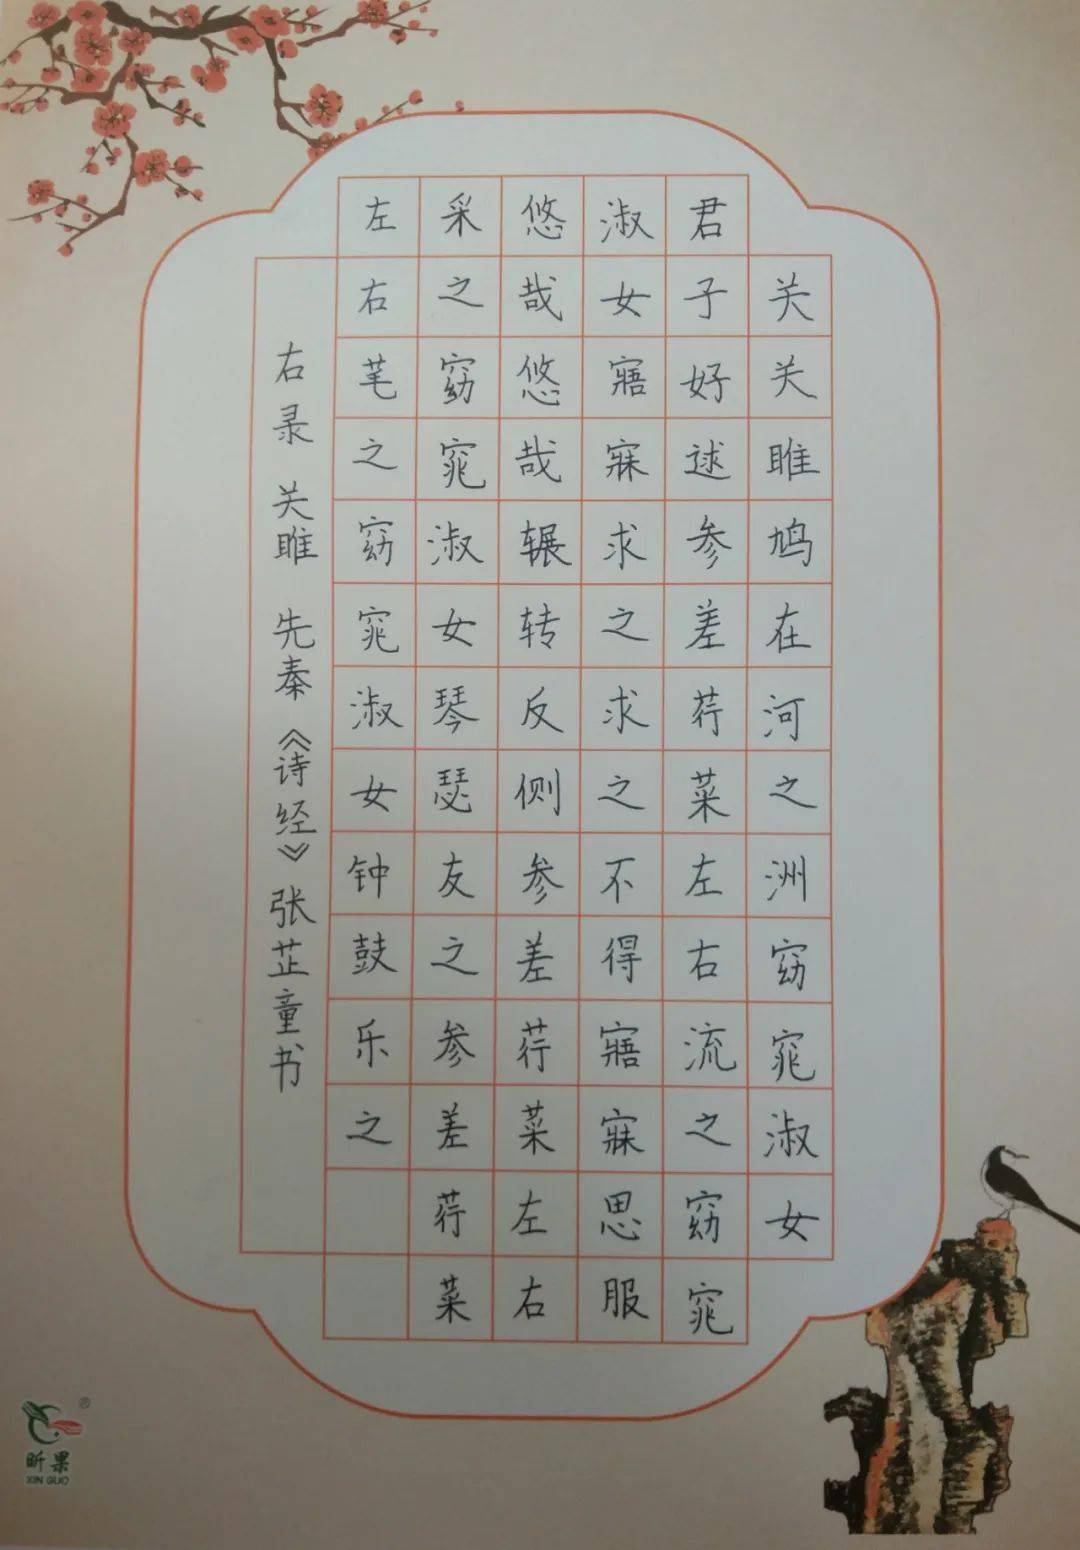 关关雎鸠在河之洲窈窕淑女
君子好逑参差荇菜左右流之窈窕
淑女寤寐求之求之不得寤寐思服
悠哉悠哉辗转反侧参差荇菜左右
采之窈窕淑女琴瑟友之参差荇菜
左右芼之窈窕淑女钟鼓乐之
右录 关雎 先秦《诗经》张芷童书
®
昕果
XIN GUO